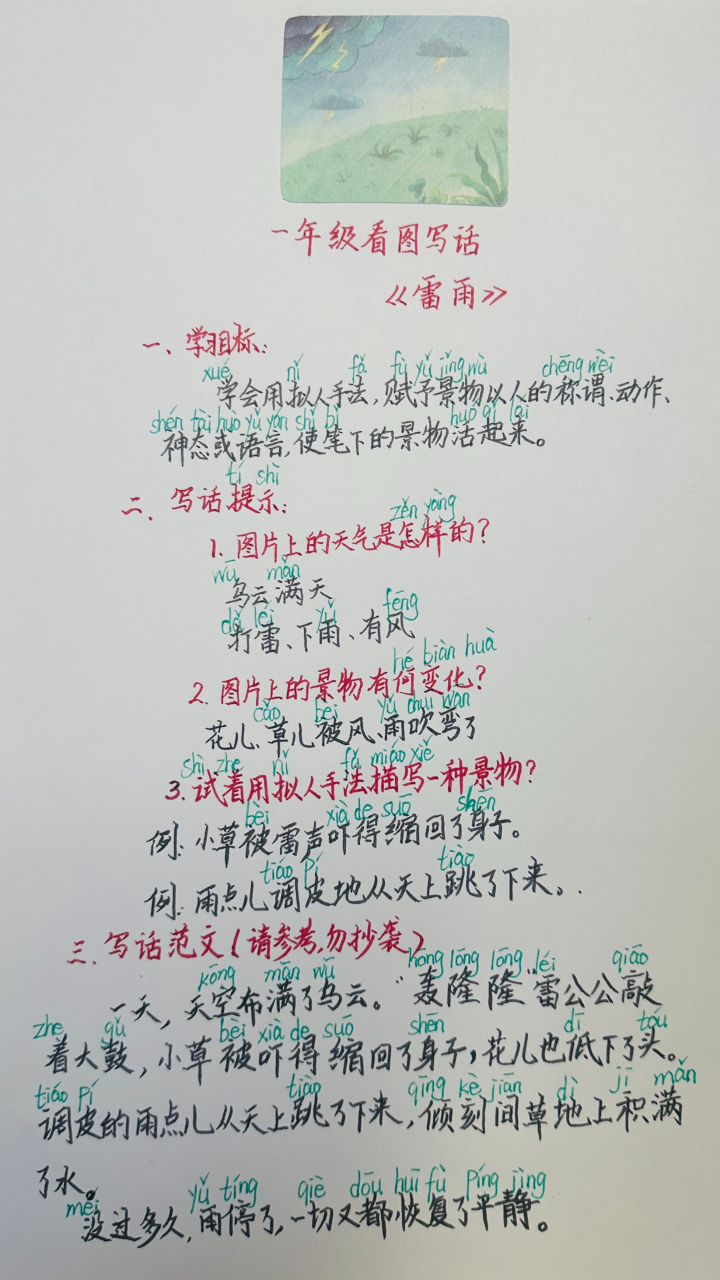 一年级看图写话
《雷雨》
一、学习目标:
xué nǐ fǎ fù yǔ jǐng wù chēng wèi
学会用拟人手法,赋予景物以人的称谓、动作、
shén tài huò yǔ yán shǐ bǐ huó qǐ lái
神态或语言,使笔下的景物活起来。
tí shì
二、写话提示:
zěn yàng
1. 图片上的天气是怎样的?
wū mǎn
乌云满天
dǎ léi yǔ fēng
打雷、下雨、有风
hé biàn huà
2. 图片上的景物有何变化?
cǎo bèi yǔ chuī wān
花儿、草儿被风、雨吹弯了
shì zhe nǐ fǎ miáo xiě
3. 试着用拟人手法描写一种景物?
bèi xià de suō shēn
例: 小草被雷声吓得缩回了身子。
tiáo pí tiào
例: 雨点儿调皮地从天上跳了下来。
三、写话范文(请参考,勿抄袭)
kōng mǎn wū hōng lōng lōng léi qiāo
一天,天空布满了乌云。“轰隆隆”雷公公敲
zhe gǔ bèi xià de suō shēn dī tóu
着大鼓,小草被吓得缩回了身子,花儿也低下了头。
tiáo pí tiào qīng kè jiān dì jī mǎn
调皮的雨点儿从天上跳了下来,倾刻间草地上积满
了水。
méi yǔ tíng qiè dōu huī fù píng jìng
没过多久,雨停了,一切又都恢复了平静。